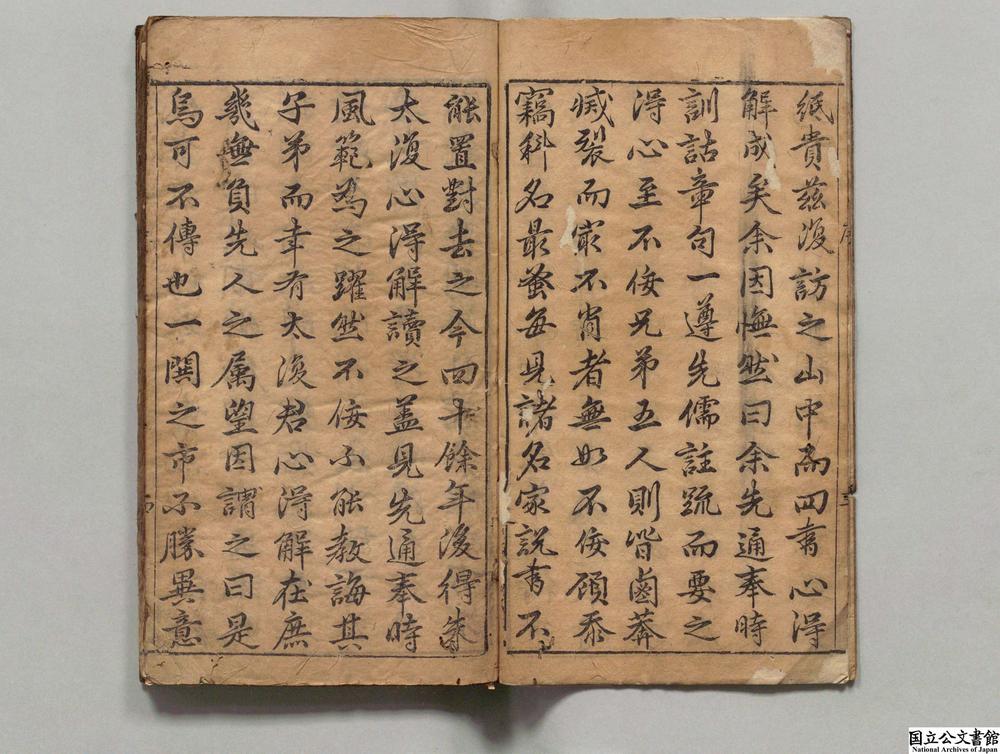 紙貴茲復訪之山中而四書心得
解成矣余因憮然曰余先通奉時
訓詁章句一遵先儒註疏而要之
得心至不佞兄弟五人則皆鹵莽
烕裂而最不肖者無如不佞顧忝
竊科名最蚤每見諸名家說書不
能置對去之今四十餘年後得朱
太復心得解讀之葢見先通奉時
風範為之躍然不佞不能教誨其
子弟而幸有太復君心得解在庶
幾無負先人之属望因謂之曰是
烏可不傳也一閧之市不勝異意
序
三
四
国立公文書館
National Archives of Japan